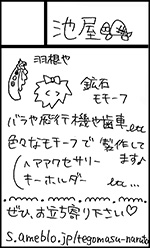 池屋
羽根や
鉱石
モチーフ
バラや飛行機や歯車 etc...
色々なモチーフで製作して
ます♪
ヘアアクセサリー
キーホルダー etc...
ぜひ、お立ち寄り下さい♡
s.ameblo.jp/tegomasu-naruto